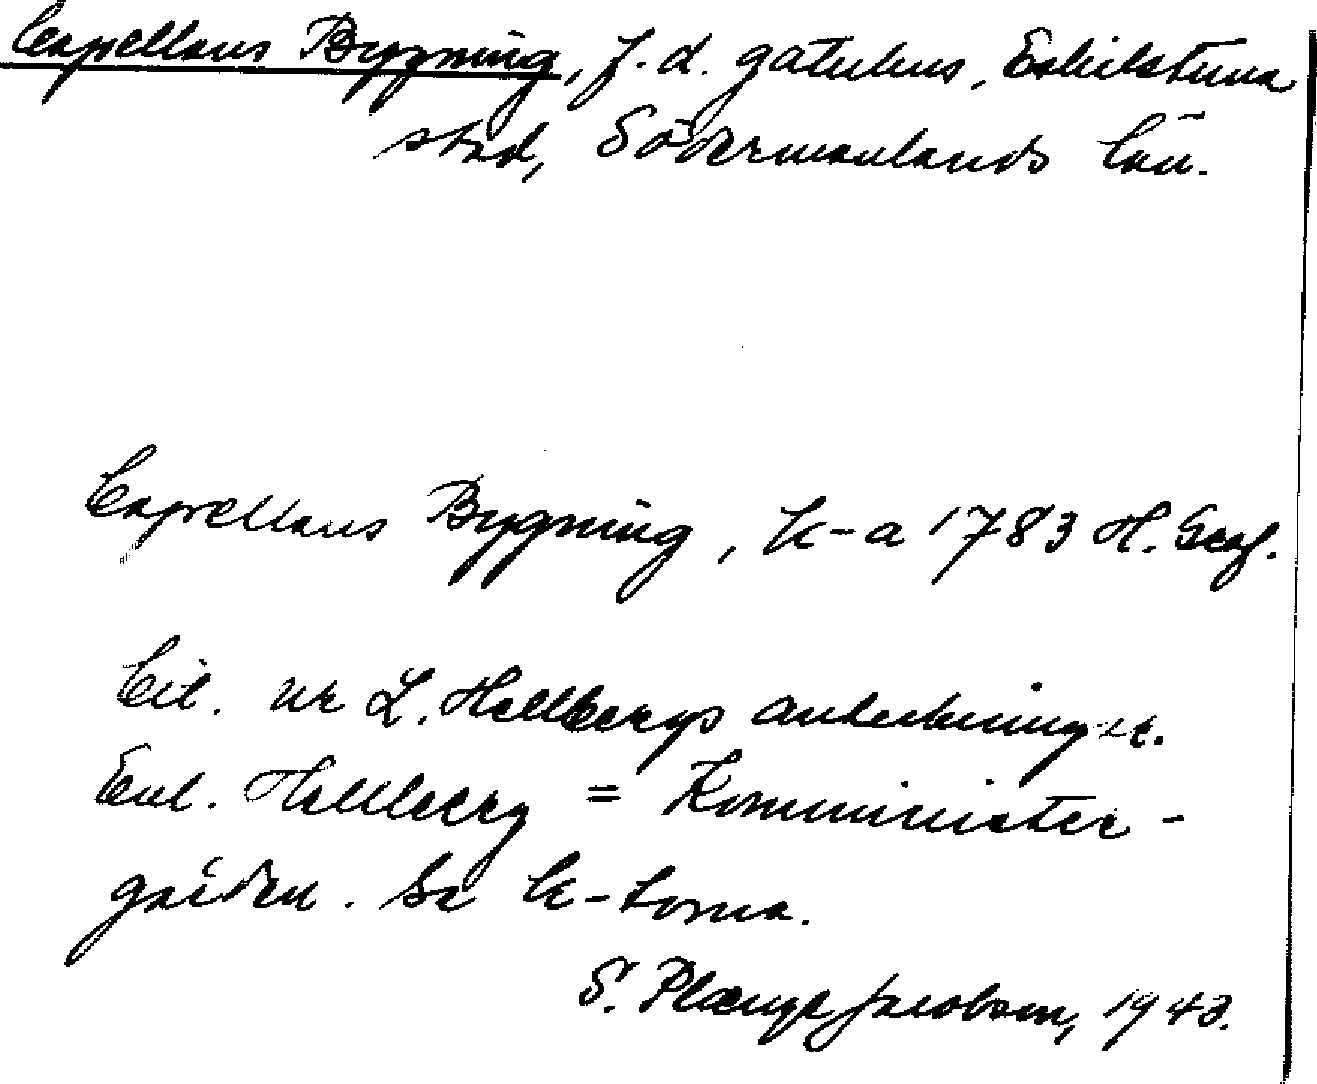 Capellans Bygning, f. d. gatuhus, Eskilstuna
stad, Södermanlands län.
Capellans Bygning, k-a 1783 H. Geogr.
Cit. ur L. Hellbergs anteckningar.
Enl. Hellberg = Komminister-
gården. Se k-torna.
S. Plænge Jacobson, 1943.